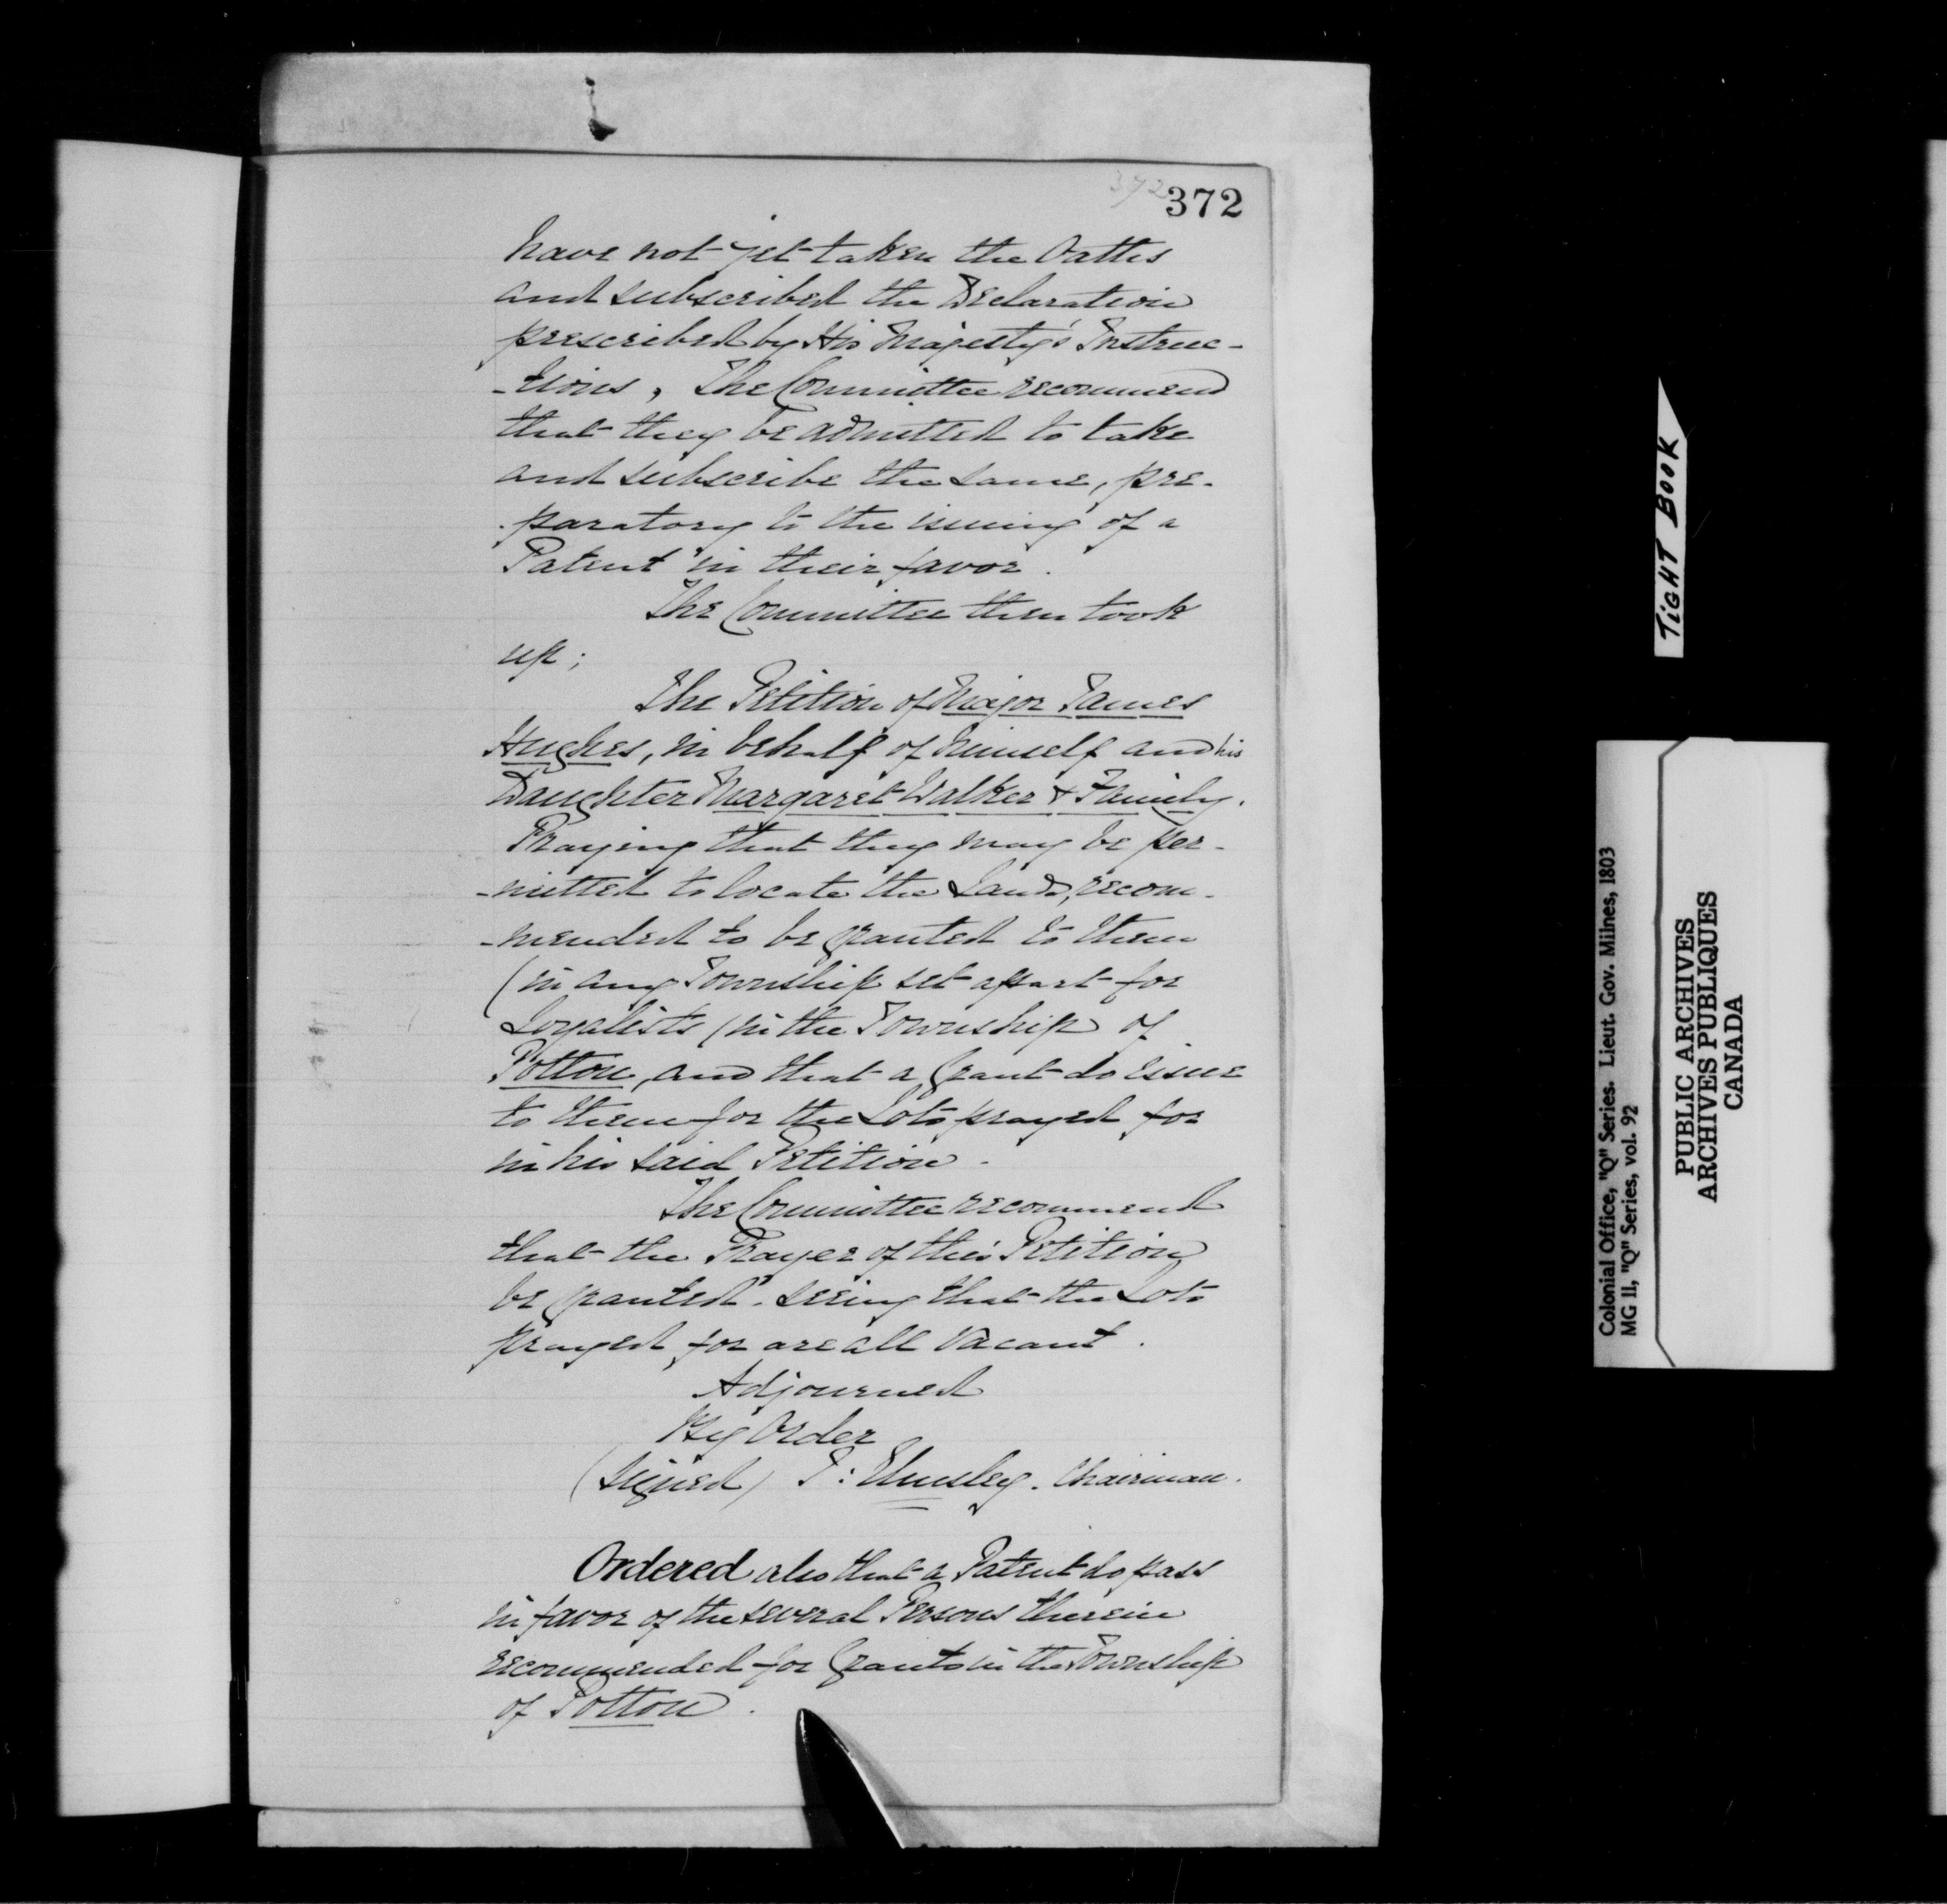 372
372
have not yet taken the Oaths
and subscribed the Declaration
prescribed by His Majesty's Instruc-
-tions, The Committee recommend
that they be admitted to take
and subscribe the same, pre-
-paratory to the issuing of a
Patent in their favor.
The Committee then took
up;
The Petition of Major James
Hughes, in behalf of himself and his
Daughter Margaret Walker & Family.
Praying that they may be per-
-mitted to locate the Lands, recom-
-mended to be granted to them
(in any Township set apart for
Loyalists (in the Township of
Potton, and that a Grant do issue
to them for the Lots prayed for
in his said Petition.
The Committee recommend
that the Prayer of this Petition
be granted. seeing that the Lots
prayed for are all vacant.
Adjourned
By Order
(signed) J: Elmsley. Chairman.
Ordered also that a Patent do pass
in favor of the several Persons therein
recommended for Grants in the Township
of Potton.
TIGHT BOOK
Colonial Office, "Q" Series. Lieut. Gov. Milnes, 1803
MG 11, "Q" Series, vol. 92
PUBLIC ARCHIVES
ARCHIVES PUBLIQUES
CANADA